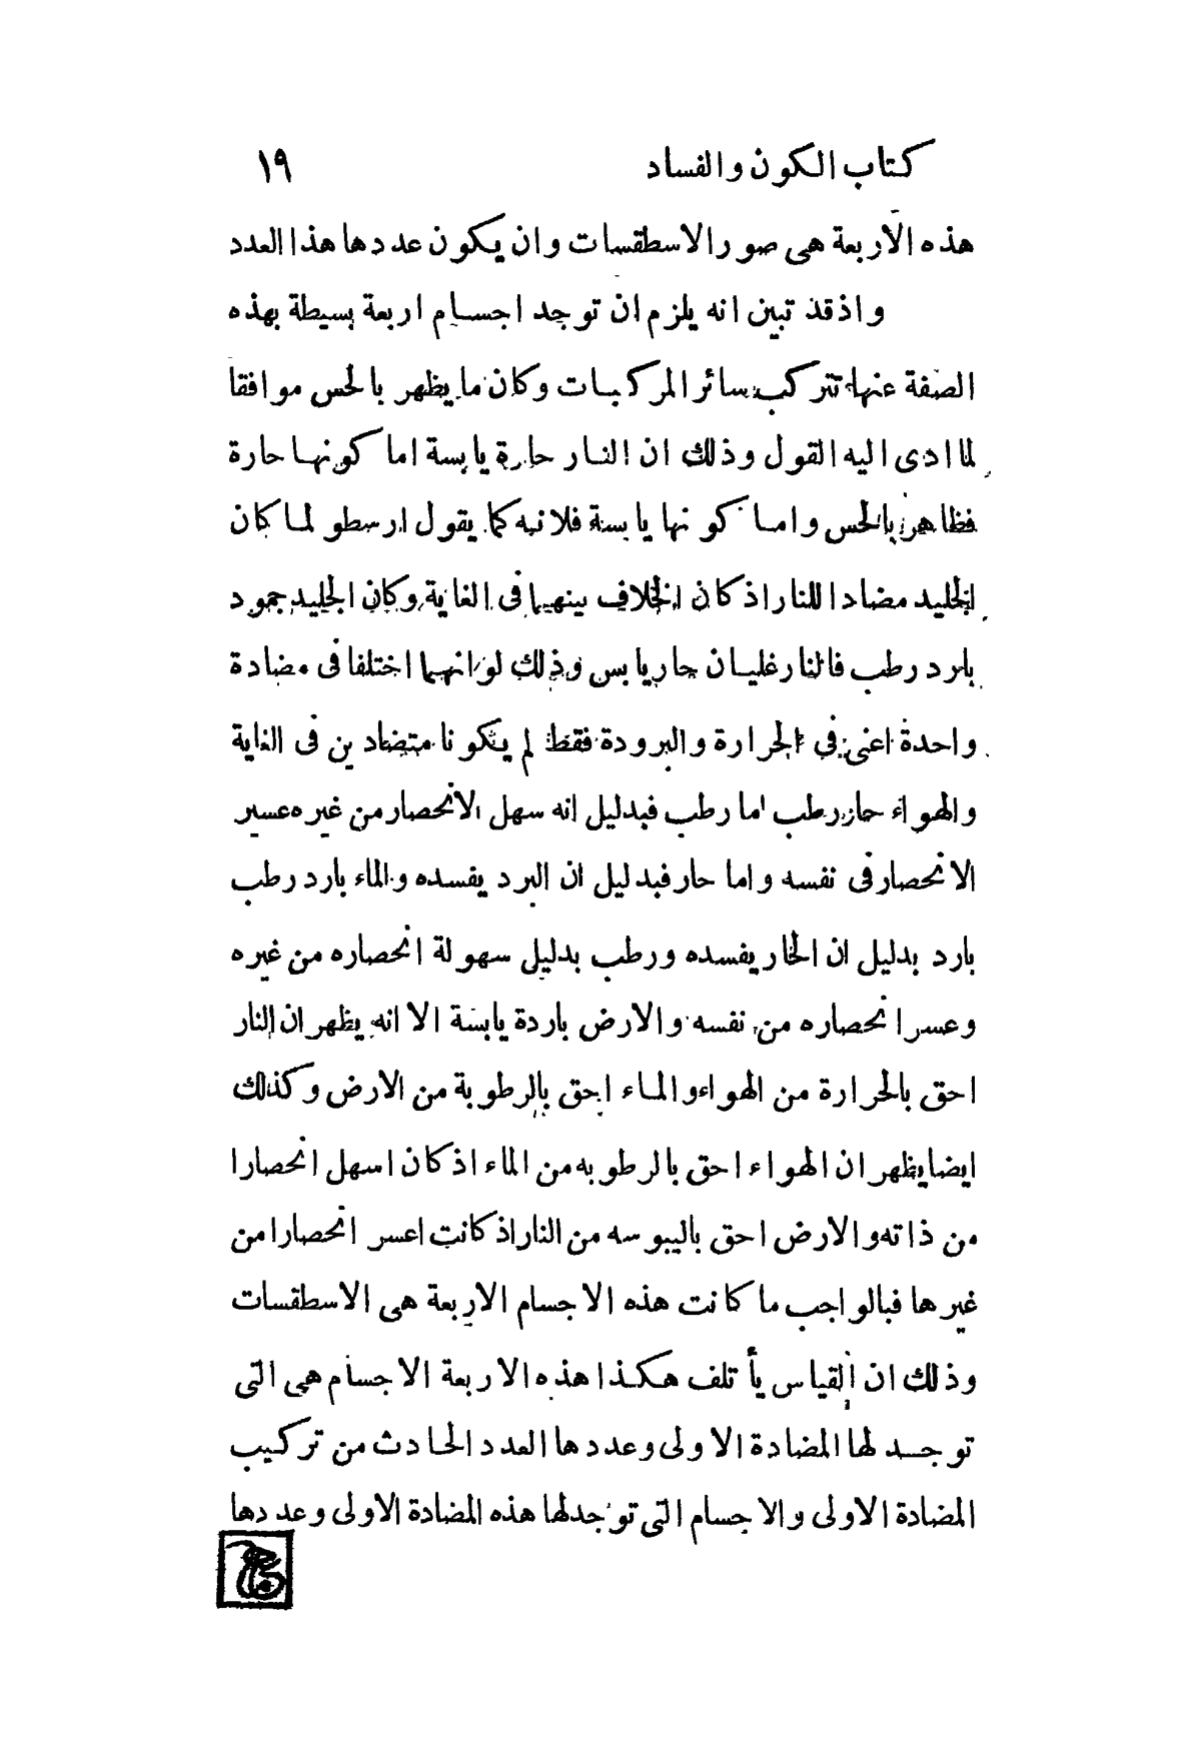 كتاب الكون والفساد ١٩
هذه الاربعة هى صور الاسطقسات وان يكون عددها هذا العدد
واذقد تبين انه يلزم ان توجد اجسام اربعة بسيطة بهذه
الصفة عنها تتركب سائر المركبات وكان ما يظهر بالحس موافقا
لما ادى اليه القول وذلك ان النار حارة يابسة اما كونها حارة
فظاهر بالحس واما كونها يابسة فلانه كما يقول ارسطو لما كان
الجليد مضادا للنار اذ كان الخلاف بينهما فى الغاية وكان الجليد جمود
بارد رطب فالنار غليان حار يابس وذلك لو انهما اختلفا فى مضادة
واحدة اعنى فى الحرارة والبرودة فقط لم يكونا متضادين فى الغاية
والهواء حار رطب اما رطب فبدليل انه سهل الانحصار من غيره عسير
الانحصار فى نفسه واما حار فبدليل ان البرد يفسده والماء بارد رطب
بارد بدليل ان الحار يفسده ورطب بدليل سهولة انحصاره من غيره
وعسر انحصاره من نفسه والارض باردة يابسة الا انه يظهر ان النار
احق بالحرارة من الهواء والماء احق بالرطوبة من الارض وكذلك
ايضا يظهر ان الهواء احق بالرطوبه من الماء اذ كان اسهل انحصارا
من ذاته والارض احق باليبوسه من النار اذ كانت اعسر انحصارا من
غيرها فبالواجب ما كانت هذه الاجسام الاربعة هى الاسطقسات
وذلك ان القياس يأتلف هكذا هذه الاربعة الاجسام هى التى
توجد لها المضادة الاولى وعددها العدد الحادث من تركيب
المضادة الاولى والاجسام التى توجد لها هذه المضادة الاولى وعددها